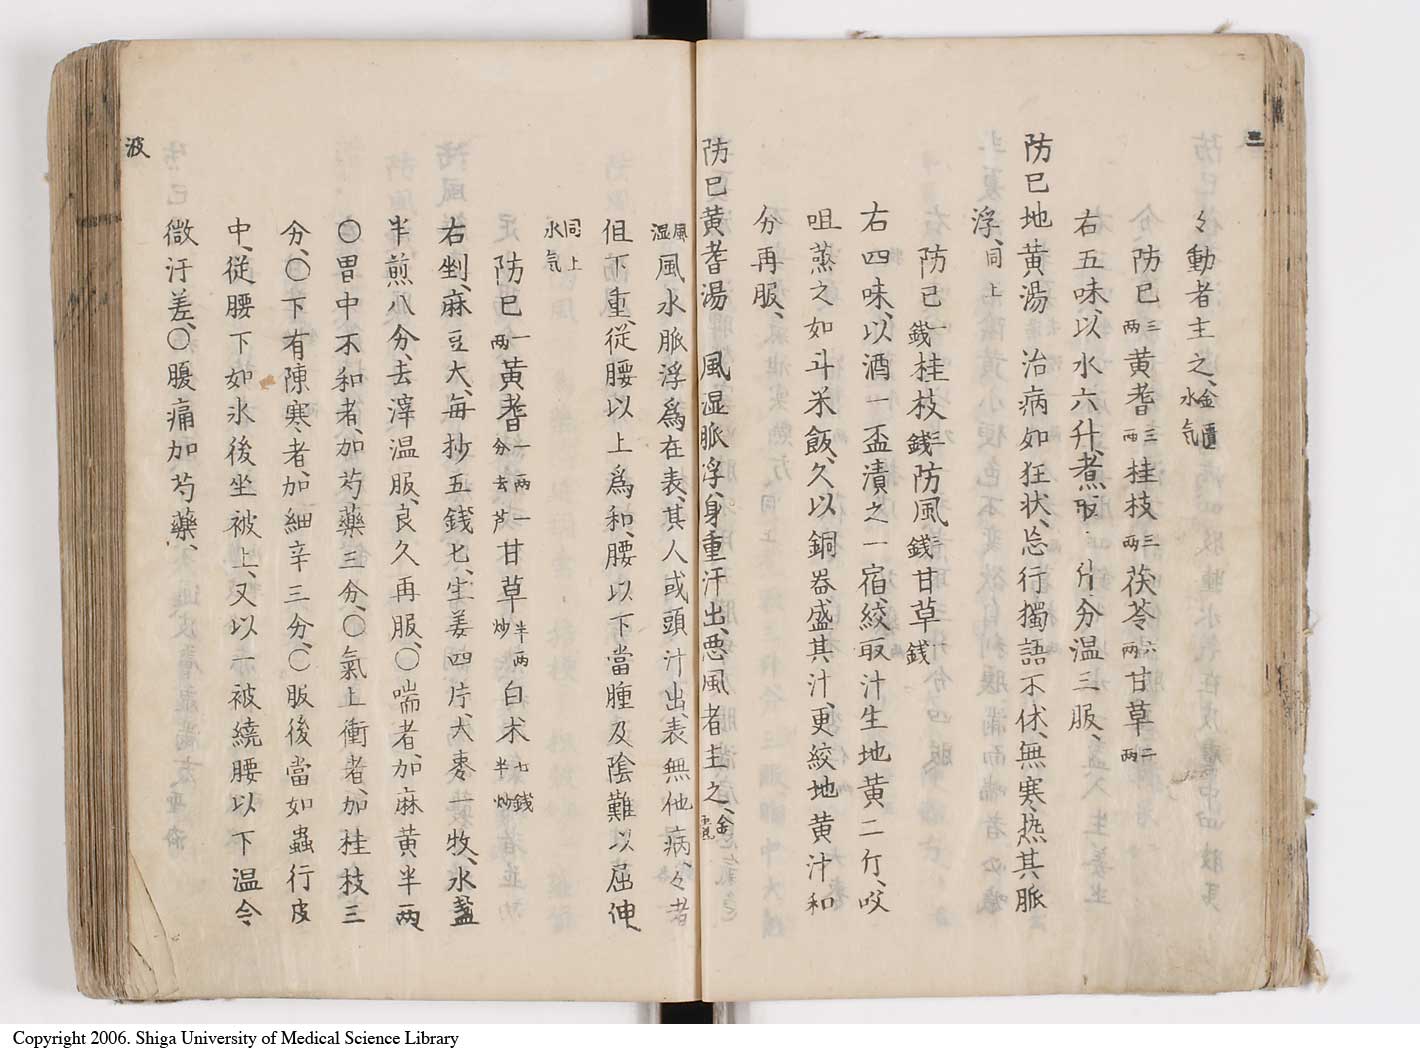 三
々動者主之、金匱水气
防已三両黄耆三両桂枝三両茯苓六両甘草二両
右五味、以水六升、煮取二升、分温三服、
防已地黄湯　治病如狂状、忘行獨語不休、無寒热其脈
浮、同上
防已一錢桂枝三錢防風三錢甘草二錢
右四味、以酒一盃漬之一宿、絞取汁生地黄二斤、㕮
咀蒸之如斗米飯、久以銅器盛其汁、更絞地黄汁和
分再服、
防已黄耆湯　風湿脈浮、身重汗出、惡風者主之、金匱
風湿風水脈浮爲在表、其人或頭汗出、表無他病、々者
但下重、從腰以上爲和、腰以下當腫及陰難以屈伸
同上水气
防已一両黄耆一両一分去芦甘草半両炒白朮七錢半炒
右剉、麻豆大、每抄五錢匕、生姜四片、大枣一牧、水盞
半煎八分、去滓温服、良久再服、〇喘者、加麻黄半両
〇胃中不和者、加芍藥三分、〇氣上衝者、加桂枝三
分、〇下有陳寒者、加細辛三分、〇服後當如蟲行皮
中、從腰下如氷後坐被上、又以一被繞腰以下温令
微汗差、〇腹痛加芍藥、
波
Copyright 2006. Shiga University of Medical Science Library